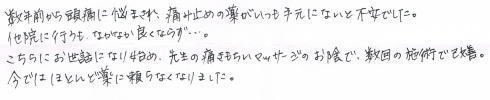 数年前から頭痛に悩まされ、痛み止めの薬がいつも手元にないと不安でした。
他院に行くも、なかなか良くならず…。
こちらにお世話になり4日め、先生の痛きもちいマッサージのお陰で、数回の施術で改善。
今ではほとんど薬に頼らなくなりました。